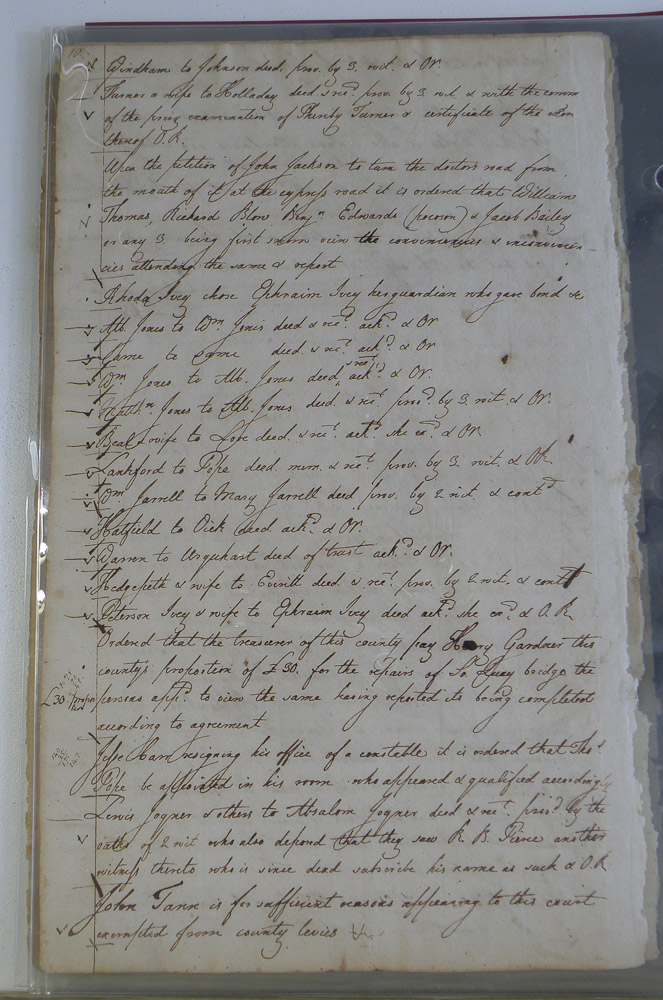 Windham to Johnson deed. prov. by 3. wit. & Or.
Turner & wife to Holladay deed & rect. prov. by 3 wit. & with the comm
of the privy examination of Turner & certificate of the exon
thereof O. R.
Upon the petition of John Jackson to turn the doctors road from
the mouth of it at the cypress road it is ordered that William
Thomas, Richard Blow Benjn. Edwards (pocoson) & Jacob Bailey
or any 3. being first sworn view the conveniencies & inconvenien-
cies attending the same & report
Rhoda Ivey chose Ephraim Ivey her guardian who gave bond &c
Alb. Jones to Wm. Jones deed & rect. ackd. & Or
Same to same deed. & rect. ackd. & Or
Wm. Jones to Alb. Jones deed & rect. ackd. & Or.
Matthw. Jones to Alb. Jones deed. & rect. provd. by 3. wit. & Or.
Beal & wife to Cope deed. & rect. ackd. she exd. & OR
Lankford to Pope deed. mem. & rect. prov. by 3. wit. & OR
Wm. Jarrell to Mary Jarrell deed prov. by 2 wit. & contd
Hatfield to Dick deed ackd. & Or.
Warren to Urquhart deed of trust ackd. & Or.
Hedgepeth & wife to Everitt deed. & rect. prov. by 2 wit. & contd
Peterson Ivey & wife to Ephraim Ivey deed ackd. she exd. & O. R
Ordered that the treasurer of this county pay Henry Gardner this
county's proportion of £30. for the repairs of So. Quay bridge the
£30
persons appd. to view the same having reported its being completed
according to agreement
Jesse resigning his office of a constable it is ordered that Thos.
Pope be appointed in his room who appeared & qualified accordingly
Lewis Joyner & others to Absalom Joyner deed & rect. provd. by the
oaths of 2 wit who also depond that they saw R. B. Pierce another
witness thereto who is since dead subscribe his name as such & O. R
John Tann is for sufficient reasons appearing to this court
exempted from county levies